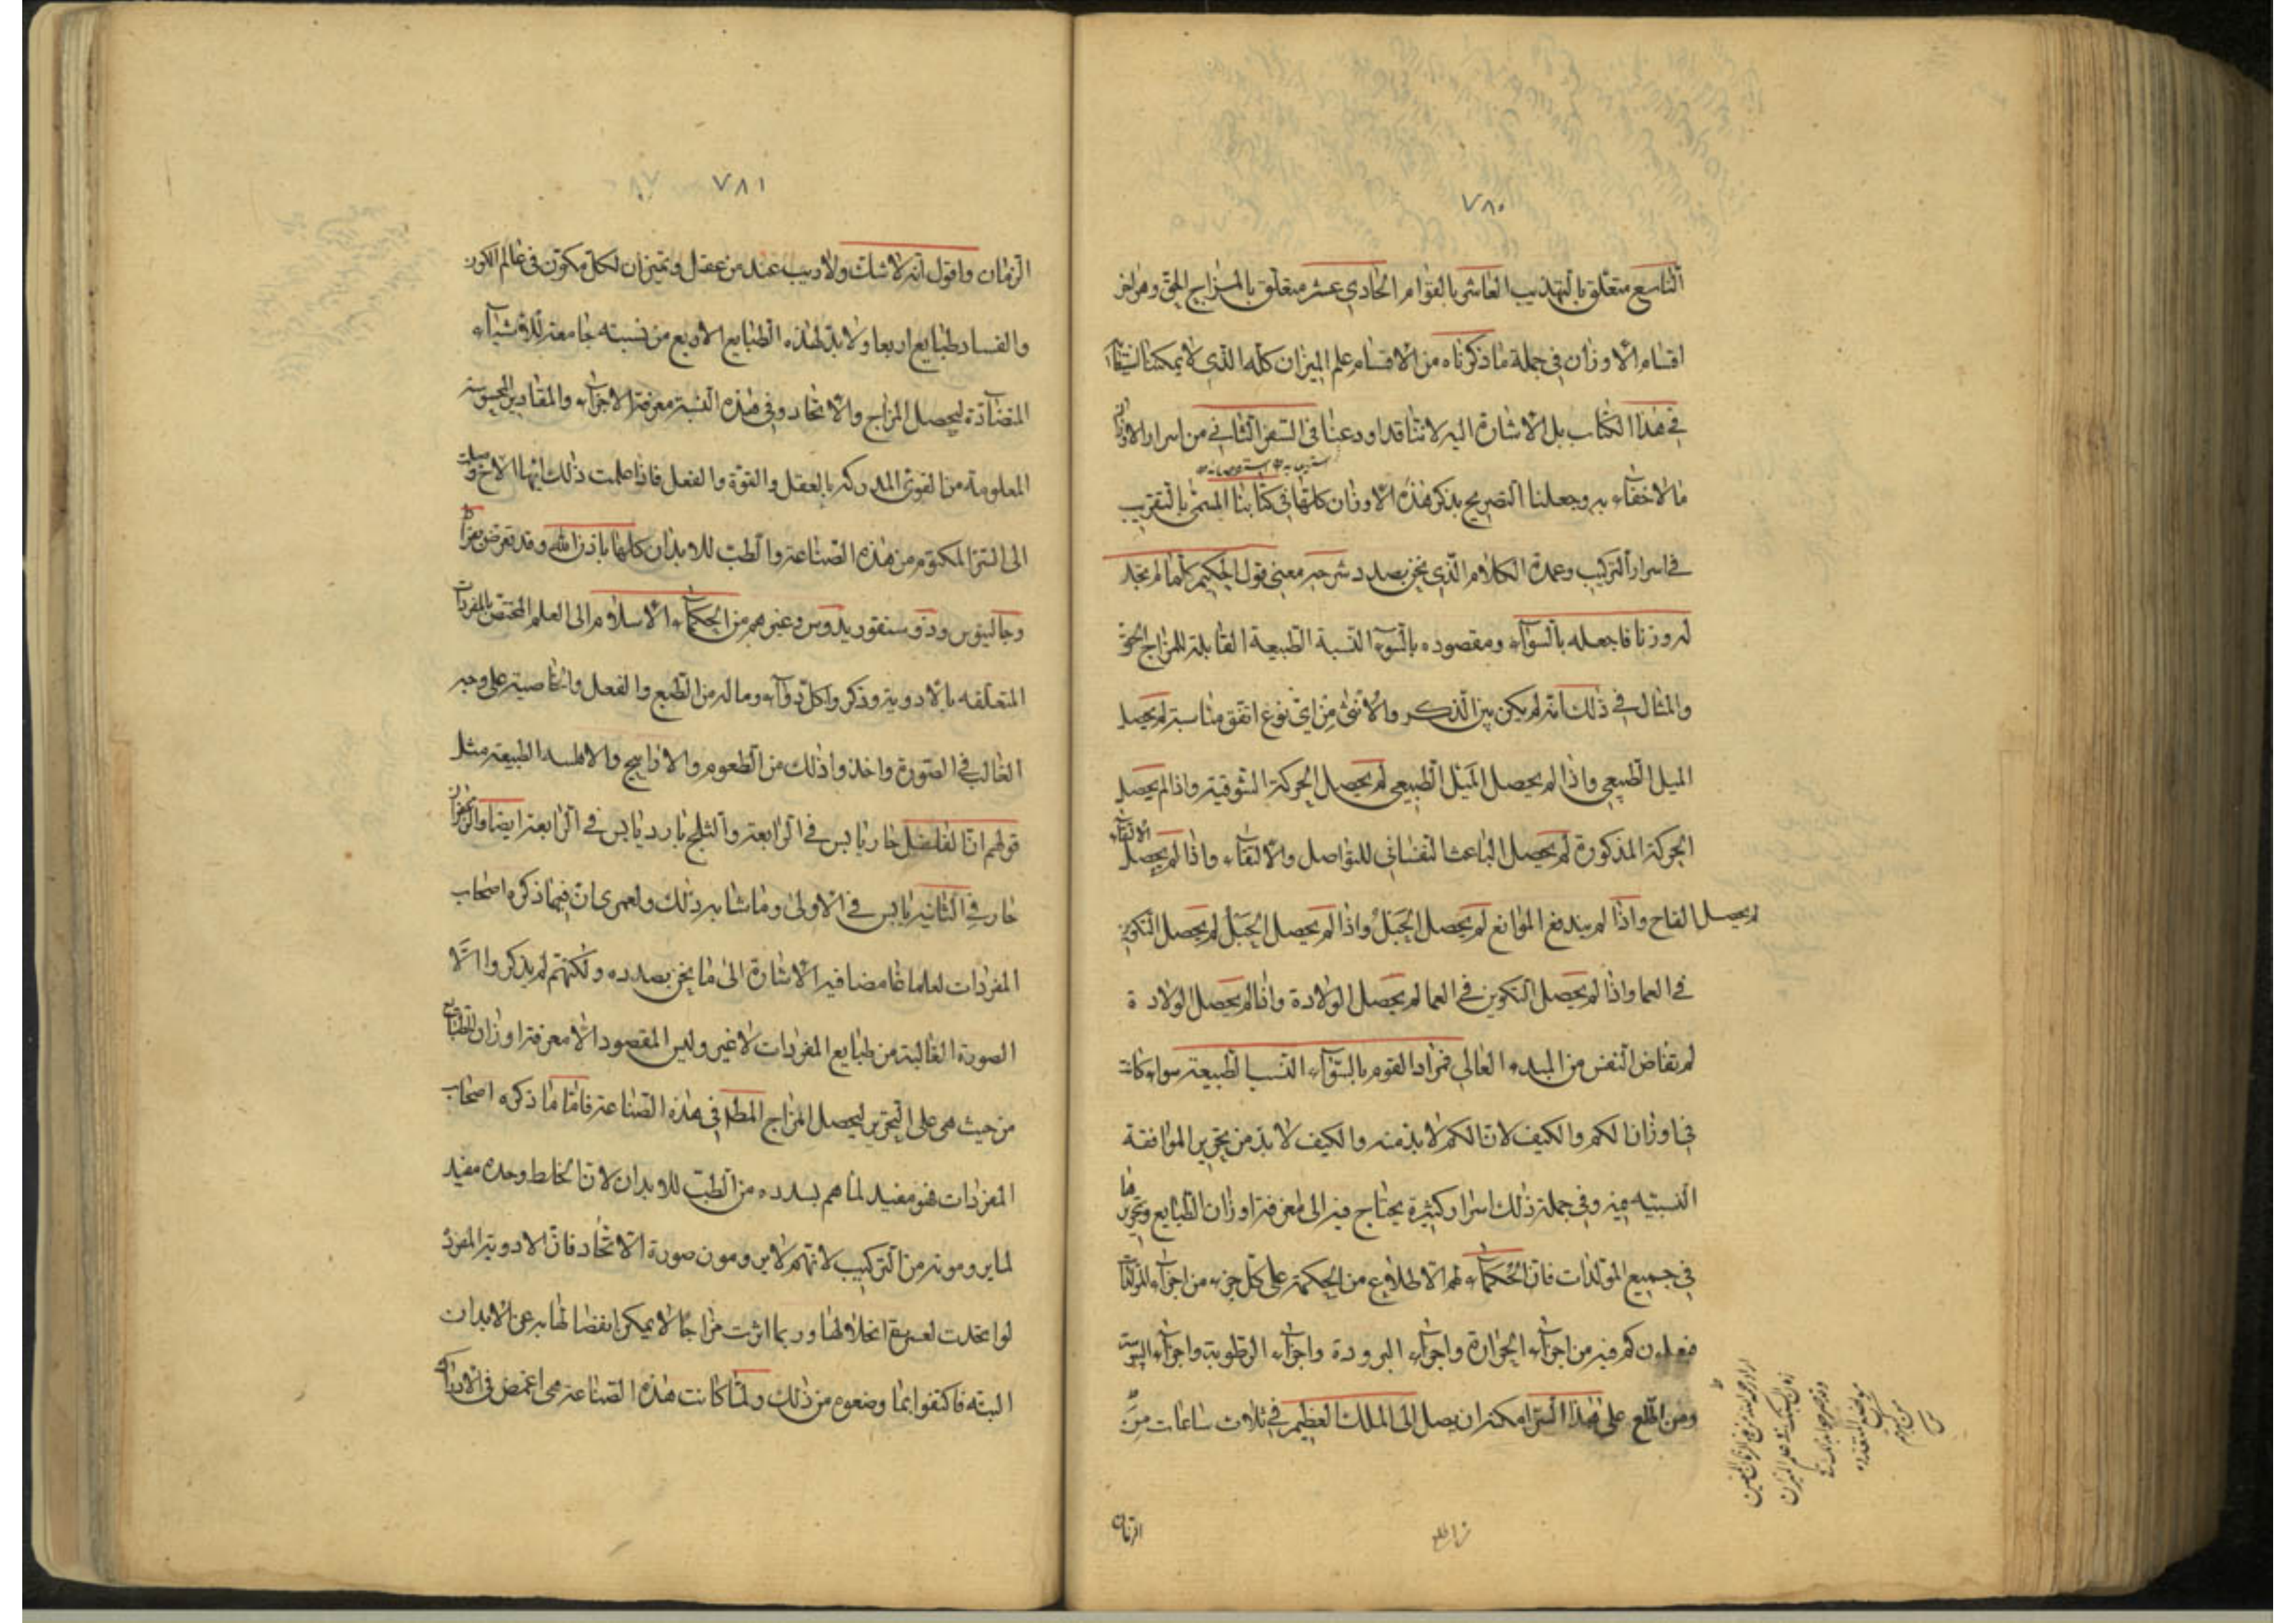 ٧٨٠
التاسع متعلق بالتهذيب العاشر بالقوام الحادي عشر متعلق بالمزاج الحق وهو اخر
اقسام الاوزان في جملة ما ذكرناه من الاقسام علم الميزان كله الذي لا يمكننا استيفاء
في هذا الكتاب بل الاشارة اليه لاننا قد اودعنا في السفر الثاني من اسرار الاوزان
ما لا خفاء به وجعلنا التصريح بذكر هذه الاوزان كلها في كتابنا المسمى بالتقريب
في اسرار التركيب وعمدة الكلام الذي نحن بصدد شرحه معنى قول الحكيم كلما لم تجد
له وزنا فاجعله بالسواء ومقصوده بالسواء النسبة الطبيعية القابلة للمزاج الحق
والمثال في ذلك انه لم يكن بين الذكر والانثى من اي نوع اتفق مناسبة لم يحصل
الميل الطبيعي واذا لم يحصل الميل الطبيعي لم يحصل الحركة الشوقية واذا لم يحصل
الحركة المذكورة لم يحصل الباعث النفساني للتواصل والالتقاء واذا لم يحصل الالتقاء
لم يحصل لقاح واذا لم يندفع الموانع لم يحصل الحبل واذا لم يحصل الحبل لم يحصل التكوين
في العما واذا لم يحصل التكوين في العما لم يحصل الولادة واذا لم يحصل الولادة
لم تفاض النفس من المبدء العالي فمراد القوم بالسواء النسب الطبيعة سواء كانت
في اوزان الكم والكيف لان الكم لا بد منه والكيف لا بد من تحرير الموافقة
النسبيه فيه وفي جملة ذلك اسرار كثيرة يحتاج فيه الى معرفة اوزان الطبايع وتحريرها
في جميع المولدات فان الحكماء لهم الاطلاع من الحكمة على كل جزء من اجزاء المولدات
فيعلمون كم فيه من اجزاء الحرارة واجزاء البرودة واجزاء الرطوبة واجزاء اليبوسة
ومن اطلع على هذا السر امكنه ان يصل الى الملك العظيم في ثلاث ساعات من
الزمان
٧٨١
الزمان واقول انه لا شك ولا ريب عند من عقل وتميز ان لكل مكون في عالم الكون
والفساد طبايع اربعا ولا بد لهذه الطبايع الاربع من نسبته جامعة للاشياء
المتضادة ليحصل المزاج والاتحاد وفي هذه النسبة معرفة الاجزاء والمقادير المحسوسة
المعلومة من القوى المدركة بالعقل والقوة والفعل فاذا علمت ذلك ايها الاخ وصلت
الى السر المكتوم من هذه الصناعة والطب للابدان كلها باذن الله وقد تعرض بقراط
وجالينوس وذوسنقوريدوس وغيرهم من الحكماء الاسلام الى العلم المختص بالمفردات
المتعلقه بالادوية وذكروا كل دواء وما له من الطبع والفعل والخاصية على وجه
الغالب في الصورة واخذوا ذلك من الطعوم والاراييح والاملسد الطبيعة مثل
قولهم ان الفلفل حار يابس في الرابعة والثلج بارد يابس في الرابعة ايضا والزعفران
حار في الثانية يابس في الاولى وما شابه ذلك ولعمري ان فيما ذكره اصحاب
المفردات لعلما غامضا فيه الاشارة الى ما نحن بصدده ولكنهم لم يذكروا الا
الصورة الغالبة من طبايع المفردات لا غير وليس المقصود الا معرفة اوزان الطبايع
من حيث هي على التحرير ليحصل المزاج المطلق في هذه الصناعة فاما ما ذكره اصحاب
المفردات فهو مفيد لما هم بسدده من الطب للابدان لان الخلط وحده مفيد
لما يرومونه من التركيب لانهم لا يرومون صورة الاتحاد فان الادوية المفردة
لو اتحدت لعسرة انحلالها وربما اثرت مزاجا لا يمكن انفصالها به عن الابدان
البته فاكتفوا بما وضعوه من ذلك ولما كانت هذه الصناعة هي اغمض في الادراك